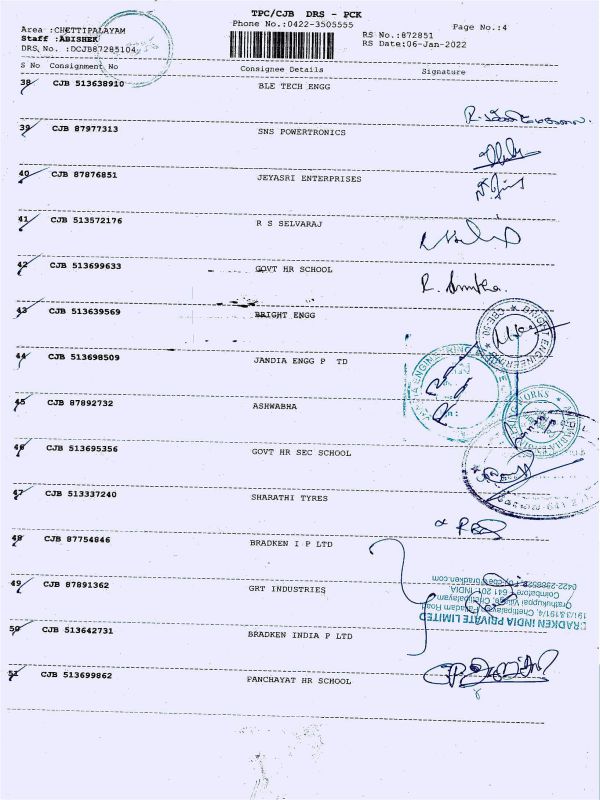 TPC/CJB DRS - PCK
Phone No.:0422-3505555
Page No.:4
Area :CHETTIPALAYAM
Staff :ABISHEK
DRS, No. :DCJB87285104
RS No.:872851
RS Date:06-Jan-2022
S No Consignment No Consignee Details Signature
38 CJB 513638910 BLE TECH ENGG
39 CJB 87977313 SNS POWERTRONICS
40 CJB 87876851 JEYASRI ENTERPRISES
41 CJB 513572176 R S SELVARAJ
42 CJB 513699633 GOVT HR SCHOOL
R. Amutha.
43 CJB 513639569 BRIGHT ENGG
BRIGHT ENGINEERING ★ CBE-50 ★
44 CJB 513698509 JANDIA ENGG P TD
45 CJB 87892732 ASHWABHA
46 CJB 513695356 GOVT HR SEC SCHOOL
47 CJB 513337240 SHARATHI TYRES
48 CJB 87754846 BRADKEN I P LTD
49 CJB 87891362 GRT INDUSTRIES
50 CJB 513642731 BRADKEN INDIA P LTD
BRADKEN INDIA PRIVATE LIMITED
191/3&191/4, Chettipalayam Palladam Road
Orathukuppai Village, Chettipalayam
Coimbatore - 641 201. INDIA.
51 CJB 513699862 PANCHAYAT HR SCHOOL